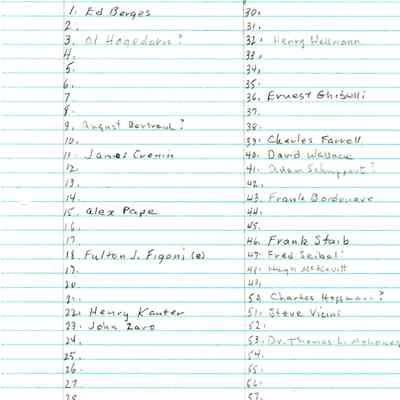 1. Ed Berges
2.
3. Al Hagedorn?
4.
5.
6.
7
8.
9. August Bertraud?
10.
11. James Cronin
12
13.
14.
15. Alex Pape
16.
17.
18. Fulton J. Figoni (e)
19.
20.
21.
22. Henry Kanter
23. John Zaro
24.
25.
26.
27
28
30.
31.
32. Henry Hellmann
33.
34.
35.
36. Ernest Ghibulli
37.
38.
39. Charles Farrell
40. David Wallace
41. Adam Schuppert?
42.
43. Frank Bordenave
44.
45.
46. Frank Staib
47. Fred Seibel
48. Hugh
49.
50. Charles Hoffman?
51. Steve Vicini
52.
53. Dr. Thomas L. Mahoney
54.
55.
56.
57.